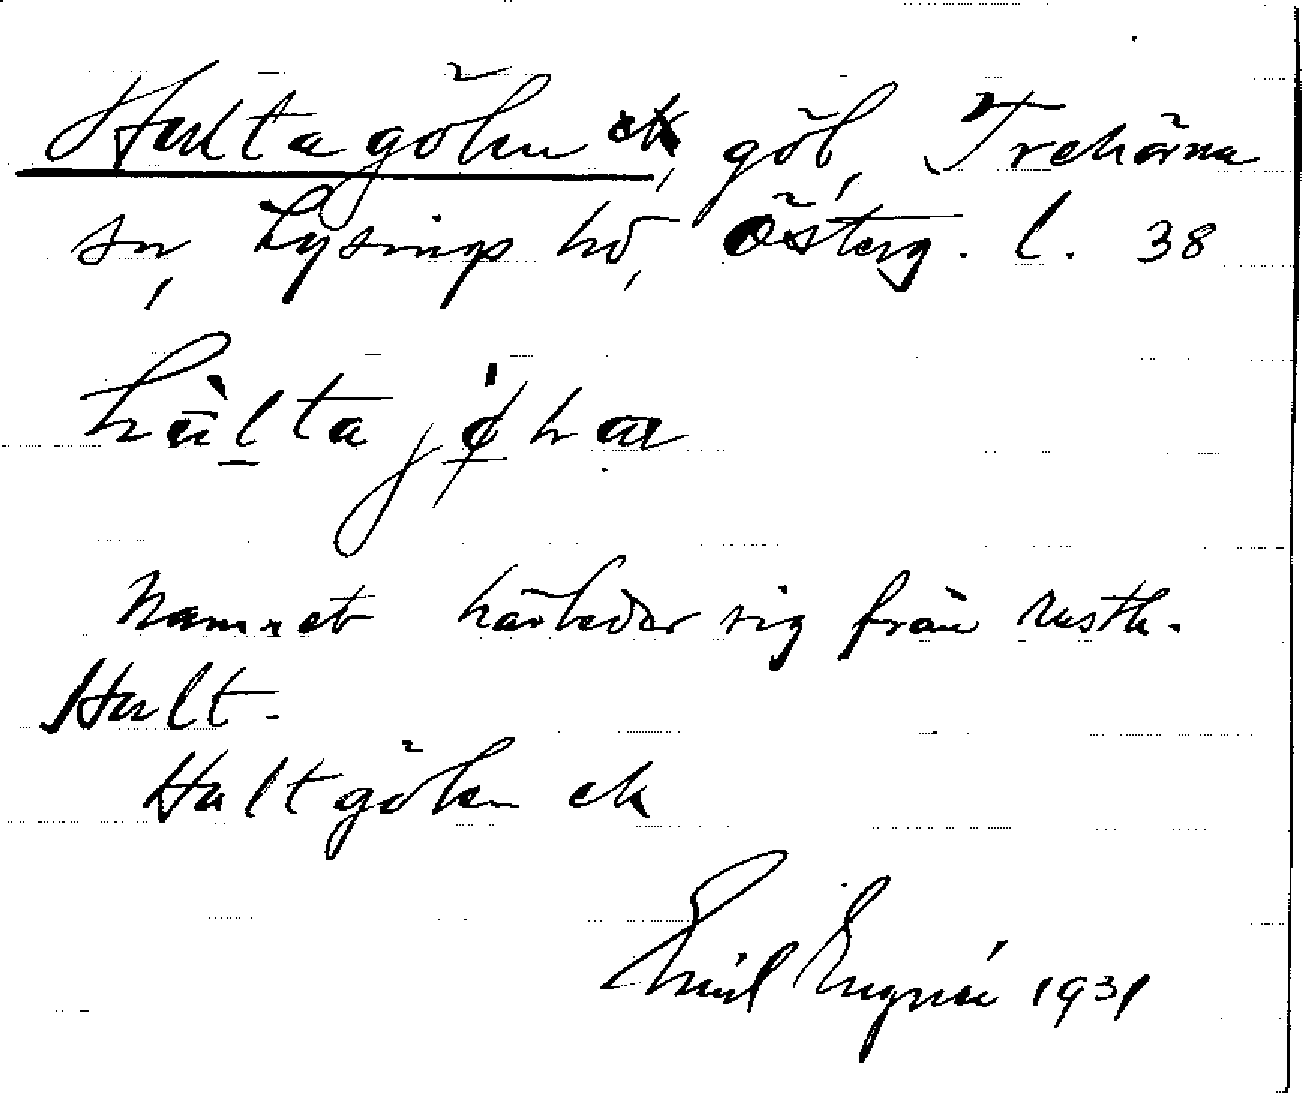 Hultagölen, göl, Trehörna
sn, Lysings hd, Österg. l. 38
Namnet härleder sig från rusth.
Hult.
Hultgölen ek
Emil Engnér 1931